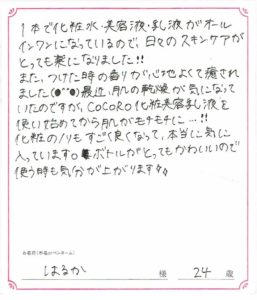 1本で化粧水・美容液・乳液がオール
インワンになっているので、日々のスキンケアが
とっても楽になりました!!
また、つけた時の香りが心地よくて癒され
ました(●^^●)最近、肌の乾燥が気になって
いたのですが、COCORO化粧美容乳液を
使い始めてから肌がモチモチに…!!
化粧のノリもすごく良くなって、本当に気に
入っています。ボトルがとってもかわいいので
使う時も気分が上がります♪
お名前(本名orペンネーム)
はるか 様 24 歳